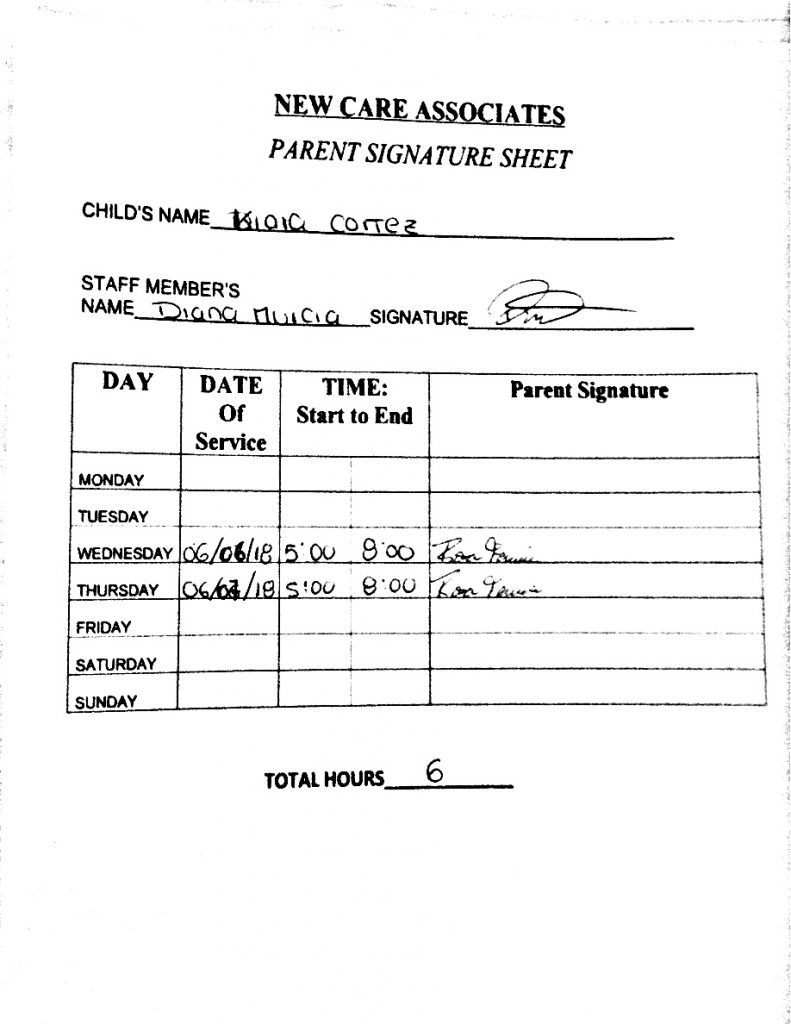 NEW CARE ASSOCIATES
PARENT SIGNATURE SHEET
CHILD'S NAME Kiara Cortez
STAFF MEMBER'S
NAME Diana Murcia SIGNATURE
DAY DATE Of Service TIME: Start to End Parent Signature
MONDAY
TUESDAY
WEDNESDAY 06/06/18 5:00 8:00
THURSDAY 06/07/18 5:00 8:00
FRIDAY
SATURDAY
SUNDAY
TOTAL HOURS 6